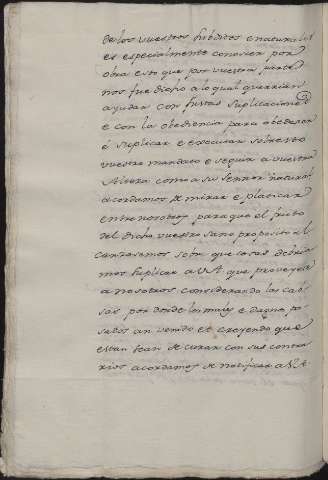 de los vuestros subditos e naturales
es especialmente conoscer por
obra esto que por vuestra parte
nos fue dicho a lo qual querrian
ayudar con justas suplicaciones
e con la obediencia para obedescer
é suplicar e executar sobre esto
vuestro mandato e seguir a vuestra
Altera como a su Señor natural
acordamos de mirar e platicar
entre nosotros para que el fruto
del dicho vuestro sano proposito al
canzasemos sobre que cosas debria
mos suplicar a V.A. que proveyese
a nosotros considerando las cab
sas por donde los males e daños pa
sados an venido et creyendo que
estan sean de curar con sus contra
rios acordamos de notificar a V.A.